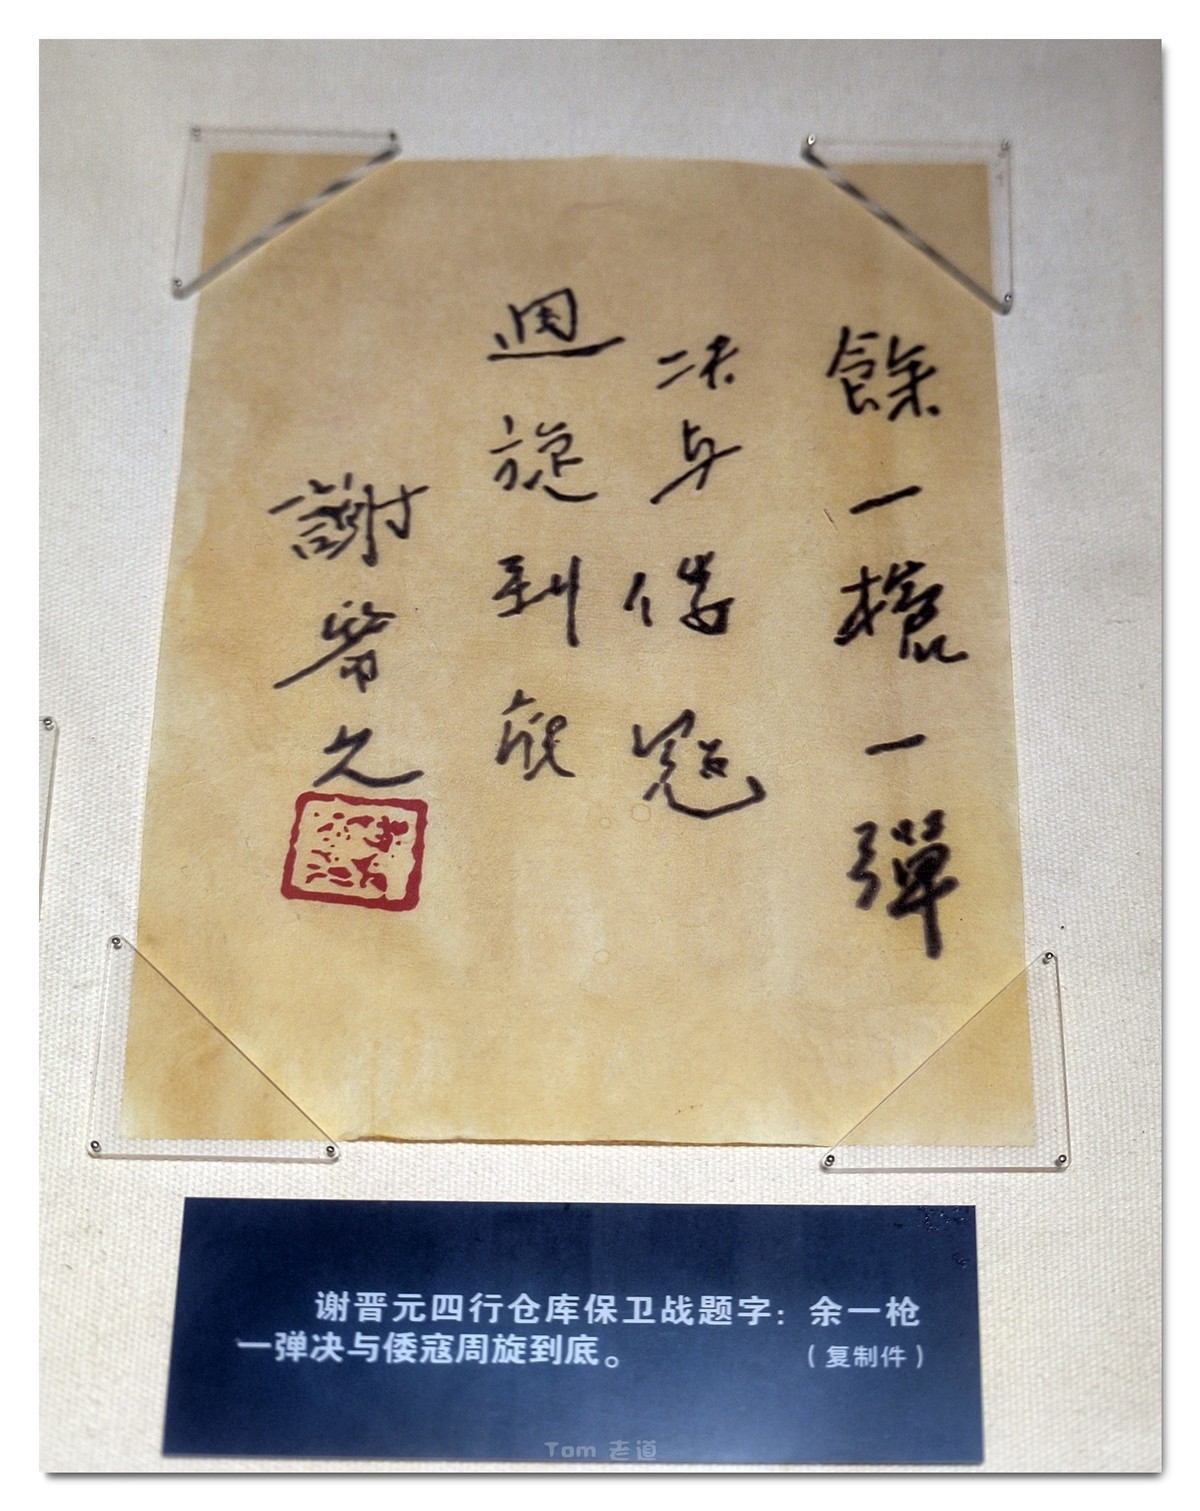 餘一槍一彈
决与倭寇
週旋到底
謝晋元
谢晋元四行仓库保卫战题字：余一枪
一弹决与倭寇周旋到底。
（复制件）
Tom 老道